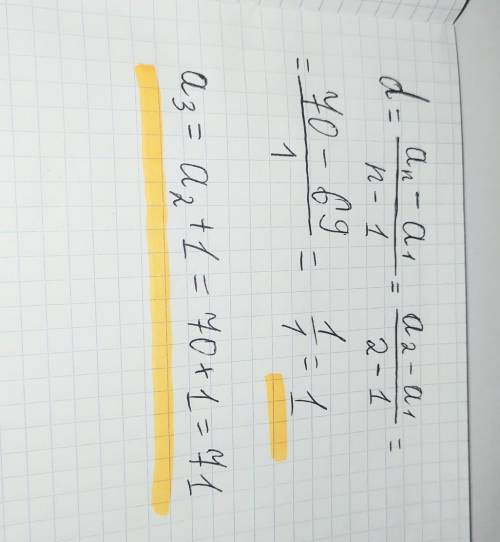 d = (aₙ - a₁)/(n - 1) = (a₂ - a₁)/(2 - 1) =
= (70 - 69)/1 = 1/1 = 1
a₃ = a₂ + 1 = 70 + 1 = 71